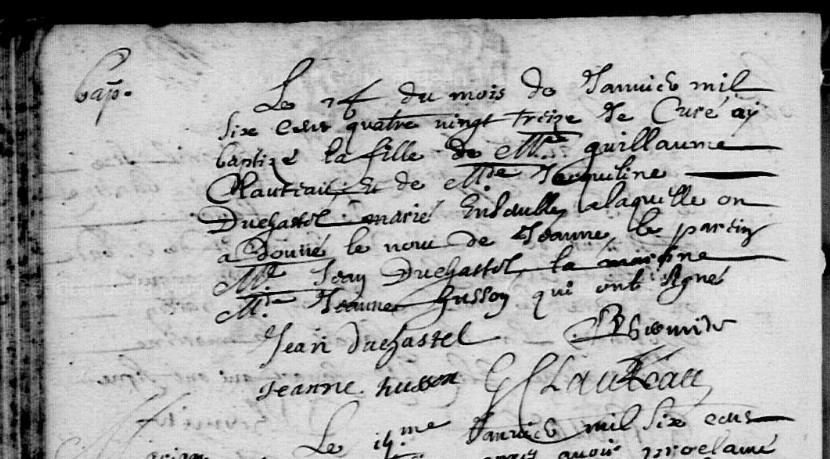 Bap.
Le du mois de Janvier mil
six cens quatre vingt treize Je Curé ay
baptizé la fille de Mre guillaume
Clauteau et de Mde Jaculine
Duchastel marié Ensemble a laquelle on
a Donné le nom de Jeanne, le parein
Mre Jean Duchastel, la mareine
Mde Jeanne husson qui ont signé
Jean duchastel
Jeanne husson G Clauteau
Le me Janvier mil six cens
apres avoir proclamé